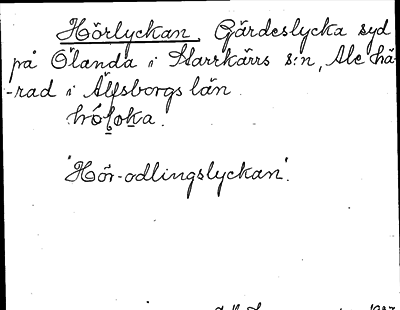 Hörlyckan, Gärdeslycka syd
på Ölanda i Starrkärrs s:n, Ale hä-
-rad i Älfsborgs län.
hó̤ḻoka.
'Hör-odlingslyckan'.